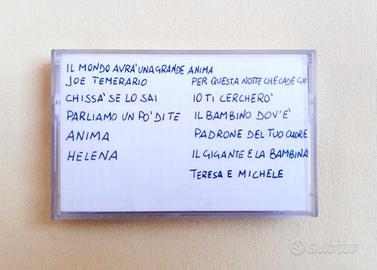 IL MONDO AVRA' UNA GRANDE ANIMA
JOE TEMERARIO
CHISSA' SE LO SAI
PARLIAMO UN PO' DI TE
ANIMA
HELENA
PER QUESTA NOTTE CHE CADE GIU'
IO TI CERCHERO'
IL BAMBINO DOV'E'
PADRONE DEL TUO CUORE
IL GIGANTE E LA BAMBINA
TERESA E MICHELE
subito